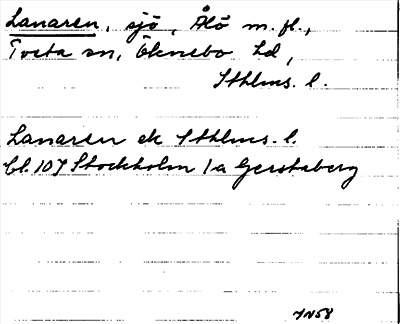 Lanaren, sjö, Ålö m.fl.,
Tveta sn, Öknebo hd,
Sthlms. l.
Lanaren ek Sthlms. l.
bl. 107 Stockholm 1a Gerstaberg
JN58